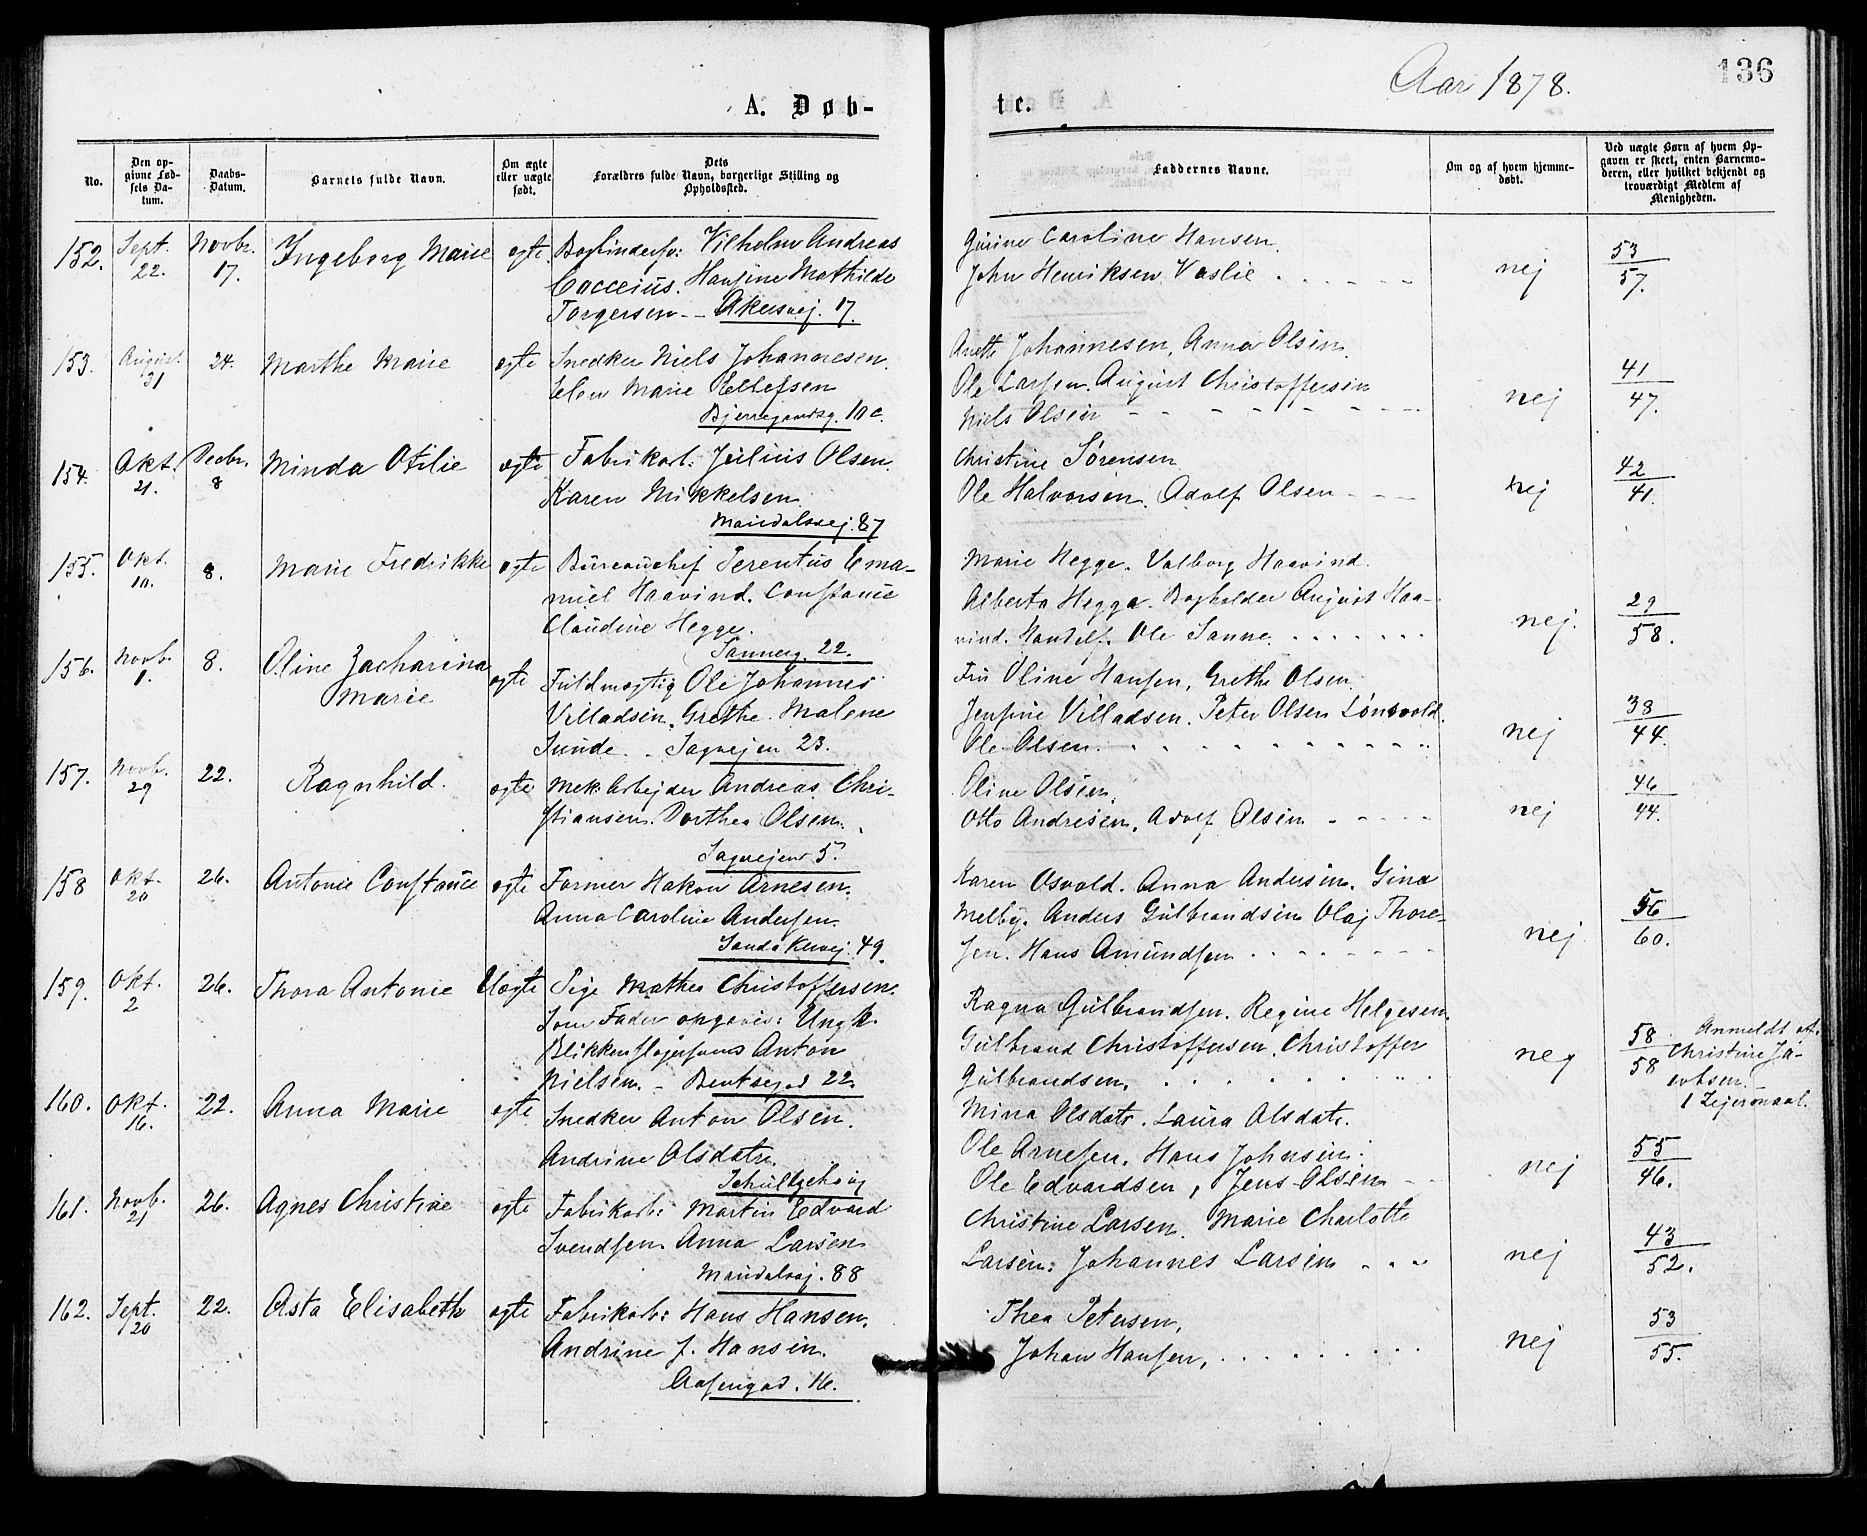 Aar 1878.
136
A. Døb-
te.
No.
Den op-
givne Fød-
sels Da-
tum.
Daabs-
Datum.
Barnets fulde Navn.
Om ægte
eller uægte
født.
Dets
Forældres fulde Navn, borgerlige Stilling og
Opholdssted.
Faddernes Navne.
Om og af hvem hjemme-
døbt.
Ved uægte Børn af hvem Op-
gaven er skeet, enten Barnemo-
deren, eller hvilket bekjendt og
troværdigt Medlem af
Menigheden.
152. Sept. 22. Novbr. 17. Ingeborg Marie ægte Bogbindersv: Vilhelm Andreas
Cocceius. Hansine Mathilde
Torgersen -- Akersvej. 17.
Gurine Caroline Hansen.
John Henriksen Vaslie
nej
53
57.
153. August. 31 24. Marthe Marie ægte Snedker Niels Johannesen.
Elen Marie Ellefsen
Bjerregaardsg. 10 c.
Anette Johannesen, Anna Olsen.
Ole Larsen. August Christoffersen
Niels Olsen
nej
41
47.
154. Okt. 21. Decbr. 8 Minda Otilie ægte Fabrikarb: Julius Olsen.
Karen Mikkelsen
Maridalsvej. 87
Christine Sørensen
Ole Halvorsen. Adolf Olsen
nej
42
41.
155. Okt. 10. 8. Marie Fredrikke ægte Bureauchef Terentus Ema-
nuel Haavind. Constance
Claudine Hegge.
Sannerg. 22.
Marie Hegge. Valborg Haavind.
Alberta Hegge. Bogholder August Haa-
vind. Handelf. Ole Sanne
nej.
29
58.
156. Novb. 1. 8. Oline Zacharina
Marie ægte Fuldmægtig Ole Johannes
Villadsen. Grethe Malene
Sunde. Sagvejen 23.
Fru Oline Hansen, Grethe Olsen.
Jensine Villadsen. Peter Olsen Lønsvold.
Ole Olsen.
nej
38
44.
157. Novb. 29 22. Ragnhild. ægte Mek. Arbejder Andreas Chri-
stiansen. Dorthea Olsen.
Sagvejen 5.
Oline Olsen.
Otto Andresen, Adolf Olsen
nej
46
44.
158 Okt. 20 26. Antonie Constance ægte Former Hakon Arnesen.
Anna Caroline Andersen.
Sandakervej. 49.
Karen Osvold. Anna Andersen. Gina
Melby. Anders Gulbrandsen Olaj Thore-
sen. Hans Amundsen
nej
56
60.
159. Okt. 2 26. Thora Antonie Uægte Pige Mathea Christoffersen.
Som Fader opgaves: Ungk.
Blikkenslagersvend Anton
Nielsen. - Bentsegad 22.
Ragna Gulbrandsen. Regine Helgesen.
Gulbrand Christoffersen. Christoffer
Gulbrandsen.
nej
58
58
Anmeldt af.
Christine Ja-
cobsen.
1 Lejermaal.
160. Okt. 16. 22. Anna Marie ægte Snedker Anton Olsen.
Andrine Olsdatr.
Schultzehaug
Mina Olsdatr. Laura Olsdatr.
Ole Arnesen. Hans Johnsen.
Ole Edvardsen, Jens Olsen
nej
55
46.
161. Novb. 21 26. Agnes Christine ægte Fabrikarb: Martin Edvard
Svendsen. Anna Larsen
Maridalsvej. 88
Christine Larsen. Marie Charlotte
Larsen: Johannes Larsen
nej
43
52.
162. Sept. 20 22. Asta Elisabeth ægte Fabrikarb: Hans Hansen.
Andrine J. Hansen.
Aasengad. 16.
Thea Petersen.
Johan Hansen,
nej
53
55.